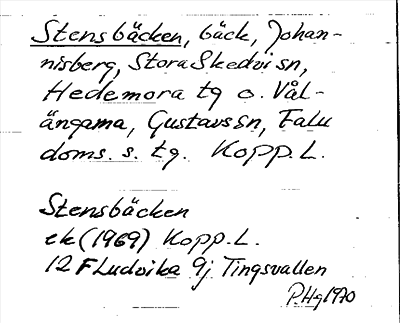 Stensbäcken, bäck, Johan-
nisberg, Stora Skedvi sn,
Hedemora tg o. Vål-
ängarna, Gustavs sn, Falu
doms. s. tg. Kopp. L.
Stensbäcken
ek (1969) Kopp. L.
12 F Ludvika 9j Tingsvallen
P.Hg 1970